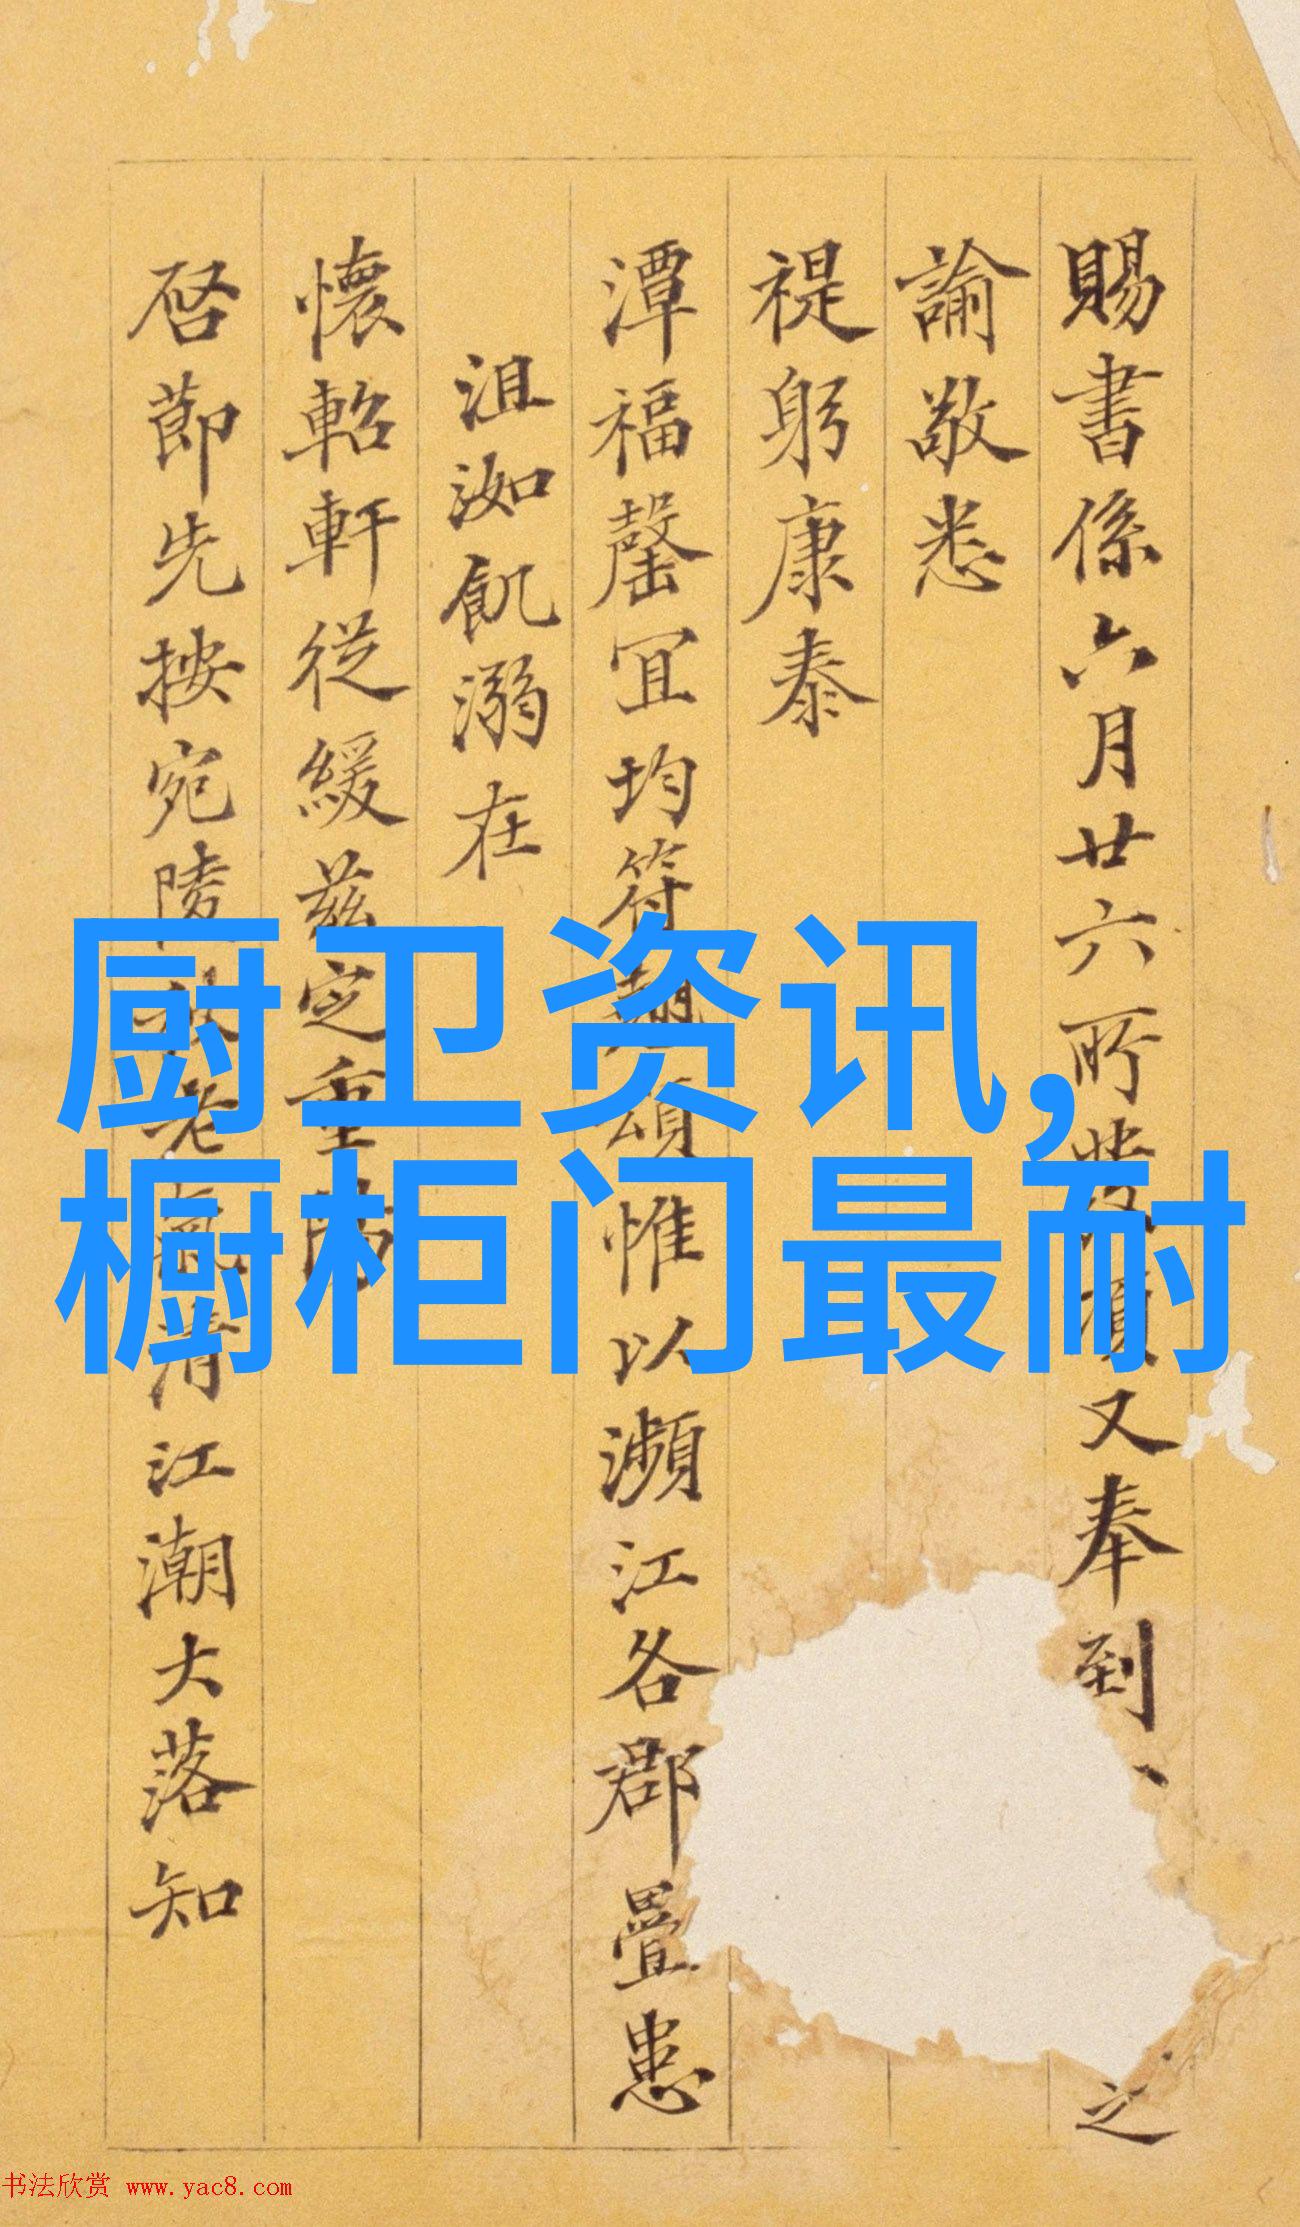 賜書係六月廿六所發須又奉到、之
諭敬悉
禔躬康泰
潭福罄宜均符頌惟以瀕江各郡疊患
沮洳飢溺在
懷軺軒從緩茲定重陽
啓節先按宛陵秋老氣清江潮大落知
厨卫资讯,
橱柜门最耐
书法欣赏 www.yac8.com